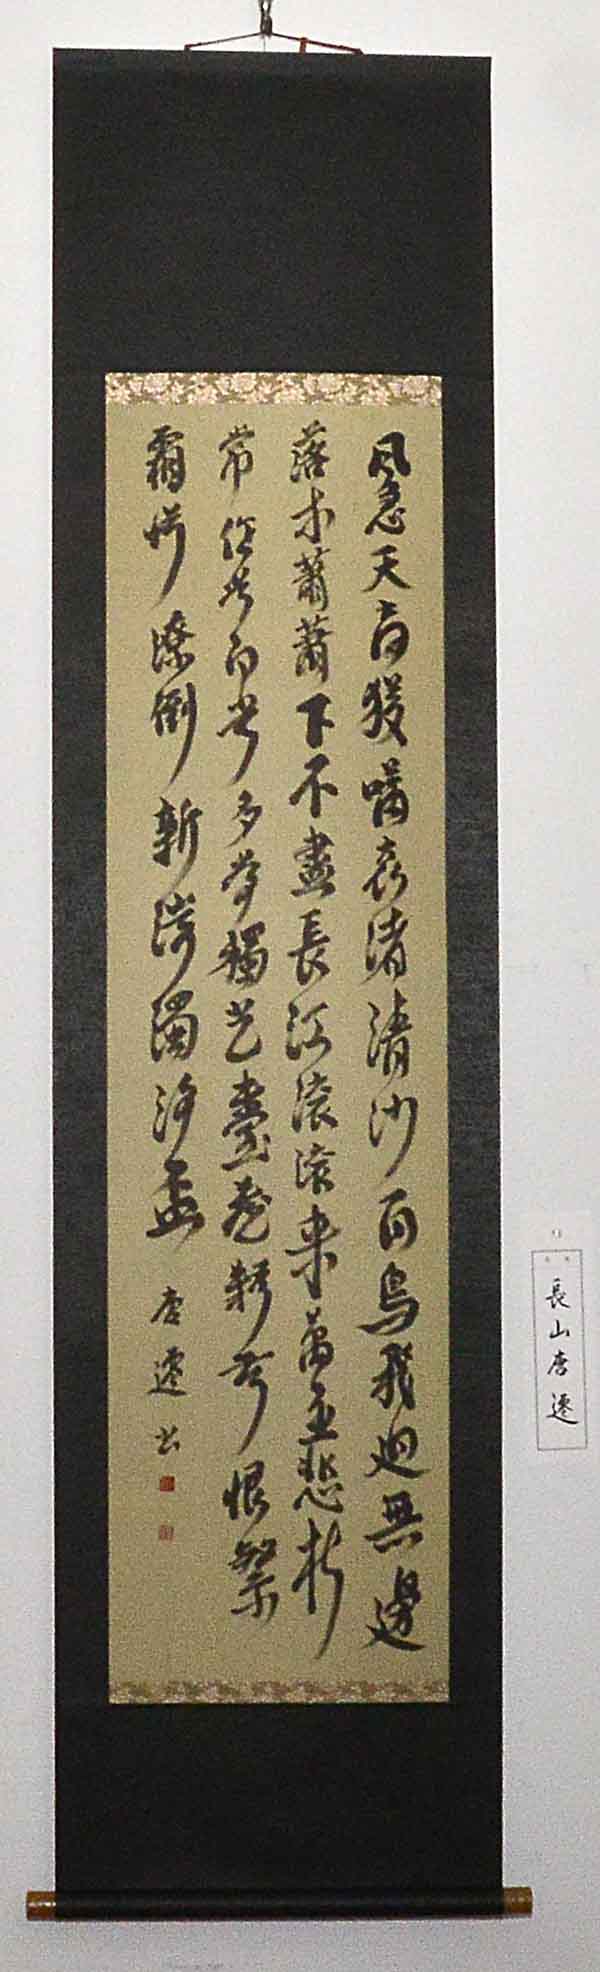 風急天高猨嘯哀渚清沙白鳥飛迴無邊
落木蕭蕭下不盡長江滾滾來萬里悲秋
常作客百年多病獨登臺艱難苦恨繁
霜鬢潦倒新停濁酒盃 唐遷書
長山唐遷